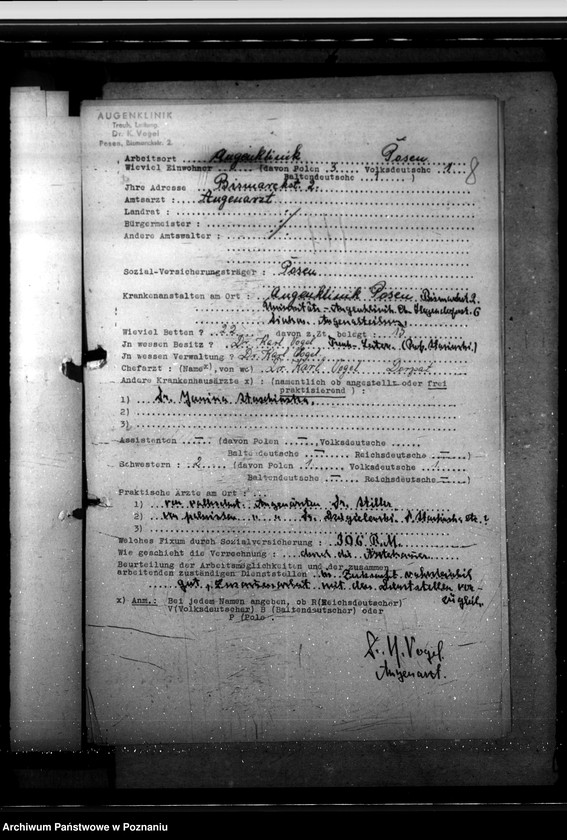 AUGENKLINIK
Treuh. Leitung
Dr. K. Vogel
Posen, Bismarckstr. 2.
8
Arbeitsort Augenklinik Posen
Wieviel Einwohner (davon Polen 3 Volksdeutsche 1
Baltendeutsche )
Jhre Adresse Bismarckstr. 2.
Amtsarzt : Augenarzt
Landrat :
Bürgermeister :
Andere Amtswalter :
Sozial-Versicherungsträger : Posen
Krankenanstalten am Ort : Augenklinik Posen, Bismarckstr. 2.
Universitäts-Augenklinik
Wieviel Betten ? 22 davon z.Zt. belegt : 15
Jn wessen Besitz ? Dr. Karl Vogel
Jn wessen Verwaltung ? Dr. Karl Vogel
Chefarzt : (Name x), von wo) Dr. Karl Vogel Dorpat
Andere Krankenhausärzte x) : (namentlich ob angestellt oder frei
praktisierend ) :
1) Dr. Janina
2)
3)
Assistenten — (davon Polen — , Volksdeutsche
Baltendeutsche — Reichsdeutsche — )
Schwestern : 2 (davon Polen 1 Volksdeutsche 1
Baltendeutsche — Reichsdeutsche — )
Praktische Ärzte am Ort :
1) von Augenärzten Dr. Stiller
2) von polnischen " " Dr.
3)
Welches Fixum durch Sozialversicherung : 306 R.M.
Wie geschieht die Verrechnung : durch die
Beurteilung der Arbeitsmöglichkeiten und der zusammen
arbeitenden zuständigen Dienststellen in Zukunft wahrscheinlich
gut, Zusammenarbeit mit den Dienststellen vor-
züglich.
x) Anm.: Bei jedem Namen angeben, ob R(Reichsdeutscher)
V(Volksdeutscher) B (Baltendeutscher) oder
P (Pole .
Dr. K. Vogel
Augenarzt.
Archiwum Państwowe w Poznaniu